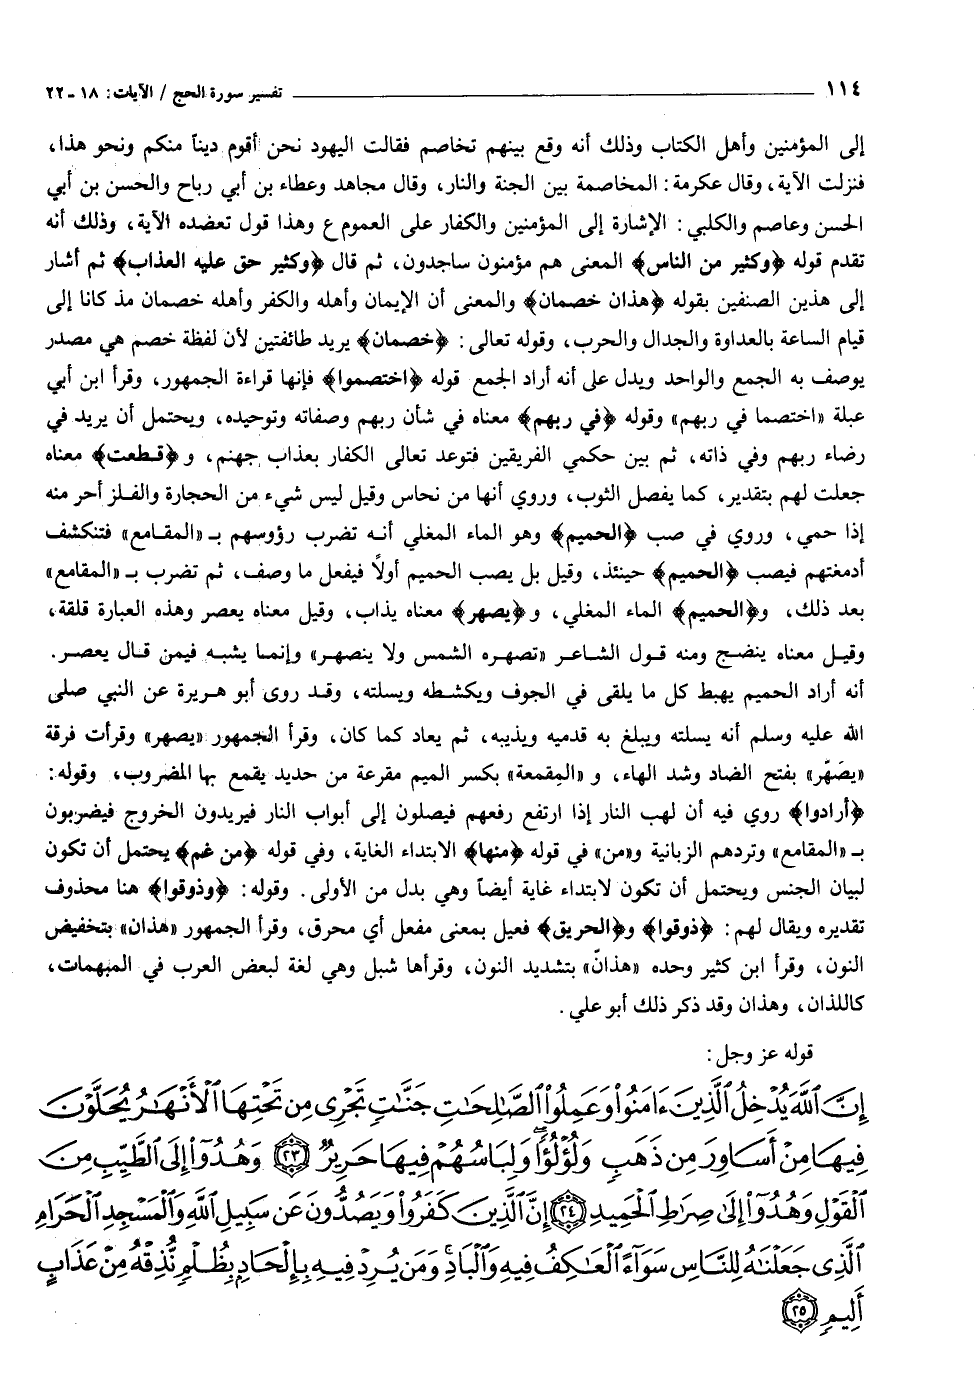 ١١٤ تفسير سورة الحج / الآيات: ١٨ - ٢٢
إلى المؤمنين وأهل الكتاب وذلك أنه وقع بينهم تخاصم فقالت اليهود نحن أقوم ديناً منكم ونحو هذا،
فنزلت الآية، وقال عكرمة: المخاصمة بين الجنة والنار، وقال مجاهد وعطاء بن أبي رباح والحسن بن أبي
الحسن وعاصم والكلبي: الإشارة إلى المؤمنين والكفار على العموم ع وهذا قول تعضده الآية، وذلك أنه
تقدم قوله ﴿وكثير من الناس﴾ المعنى هم مؤمنون ساجدون، ثم قال ﴿وكثير حق عليه العذاب﴾ ثم أشار
إلى هذين الصنفين بقوله ﴿هذان خصمان﴾ والمعنى أن الإيمان وأهله والكفر وأهله خصمان مذ كانا إلى
قيام الساعة بالعداوة والجدال والحرب، وقوله تعالى: ﴿خصمان﴾ يريد طائفتين لأن لفظة خصم هي مصدر
يوصف به الجمع والواحد ويدل على أنه أراد الجمع قوله ﴿اختصموا﴾ فإنها قراءة الجمهور، وقرأ ابن أبي
عبلة «اختصما في ربهم» وقوله ﴿في ربهم﴾ معناه في شأن ربهم وصفاته وتوحيده، ويحتمل أن يريد في
رضاء ربهم وفي ذاته، ثم بين حكمي الفريقين فتوعد تعالى الكفار بعذاب جهنم، و﴿قطعت﴾ معناه
جعلت لهم بتقدير، كما يفصل الثوب، وروي أنها من نحاس وقيل ليس شيء من الحجارة والفلز أحر منه
إذا حمي، وروي في صب ﴿الحميم﴾ وهو الماء المغلي أنه تضرب رؤوسهم بـ «المقامع» فتنكشف
أدمغتهم فيصب ﴿الحميم﴾ حينئذ، وقيل بل يصب الحميم أولاً فيفعل ما وصف، ثم تضرب بـ «المقامع»
بعد ذلك، و﴿الحميم﴾ الماء المغلي، و﴿يصهر﴾ معناه يذاب، وقيل معناه يعصر وهذه العبارة قلقة،
وقيل معناه ينضج ومنه قول الشاعر «تصهره الشمس ولا ينصهر» وإنما يشبه فيمن قال يعصر.
أنه أراد الحميم يهبط كل ما يلقى في الجوف ويكشطه ويسلته، وقد روى أبو هريرة عن النبي صلى
الله عليه وسلم أنه يسلته ويبلغ به قدميه ويذيبه، ثم يعاد كما كان، وقرأ الجمهور «يصهر» وقرأت فرقة
«يصَهّر» بفتح الضاد وشد الهاء، و «المِقمعة» بكسر الميم مقرعة من حديد يقمع بها المضروب، وقوله:
﴿أرادوا﴾ روي فيه أن لهب النار إذا ارتفع رفعهم فيصلون إلى أبواب النار فيريدون الخروج فيضربون
بـ «المقامع» وتردهم الزبانية و«من» في قوله ﴿منها﴾ الابتداء الغاية، وفي قوله ﴿من غم﴾ يحتمل أن تكون
لبيان الجنس ويحتمل أن تكون لابتداء غاية أيضاً وهي بدل من الأولى. وقوله: ﴿وذوقوا﴾ هنا محذوف
تقديره ويقال لهم: ﴿ذوقوا﴾ و﴿الحريق﴾ فعيل بمعنى مفعل أي محرق، وقرأ الجمهور «هذان» بتخفيض
النون، وقرأ ابن كثير وحده «هذانّ» بتشديد النون، وقرأها شبل وهي لغة لبعض العرب في المبهمات،
كاللذان، وهذان وقد ذكر ذلك أبو علي.
قوله عز وجل:
إِنَّ ٱللَّهَ يُدْخِلُ ٱلَّذِينَ ءَامَنُوا۟ وَعَمِلُوا۟ ٱلصَّٰلِحَٰتِ جَنَّٰتٍ تَجْرِى مِن تَحْتِهَا ٱلْأَنْهَٰرُ يُحَلَّوْنَ
فِيهَا مِنْ أَسَاوِرَ مِن ذَهَبٍ وَلُؤْلُؤًا وَلِبَاسُهُمْ فِيهَا حَرِيرٌ ﴿٢٣﴾ وَهُدُوٓا۟ إِلَى ٱلطَّيِّبِ مِنَ
ٱلْقَوْلِ وَهُدُوٓا۟ إِلَىٰ صِرَٰطِ ٱلْحَمِيدِ ﴿٢٤﴾ إِنَّ ٱلَّذِينَ كَفَرُوا۟ وَيَصُدُّونَ عَن سَبِيلِ ٱللَّهِ وَٱلْمَسْجِدِ ٱلْحَرَامِ
ٱلَّذِى جَعَلْنَٰهُ لِلنَّاسِ سَوَآءً ٱلْعَٰكِفُ فِيهِ وَٱلْبَادِ وَمَن يُرِدْ فِيهِ بِإِلْحَادٍۭ بِظُلْمٍ نُّذِقْهُ مِنْ عَذَابٍ
أَلِيمٍ ﴿٢٥﴾